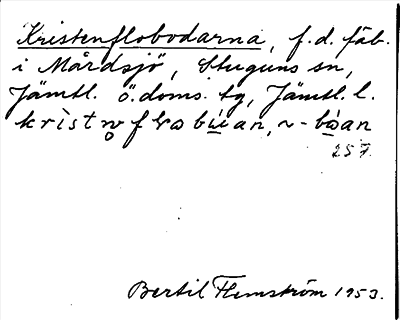 Kristenflobodarna, f.d. fäb.
i Mårdsjö, Stuguns sn,
Jämtl. ö. doms. tg, Jämtl. l.
257.
Bertil Flemström 1953.